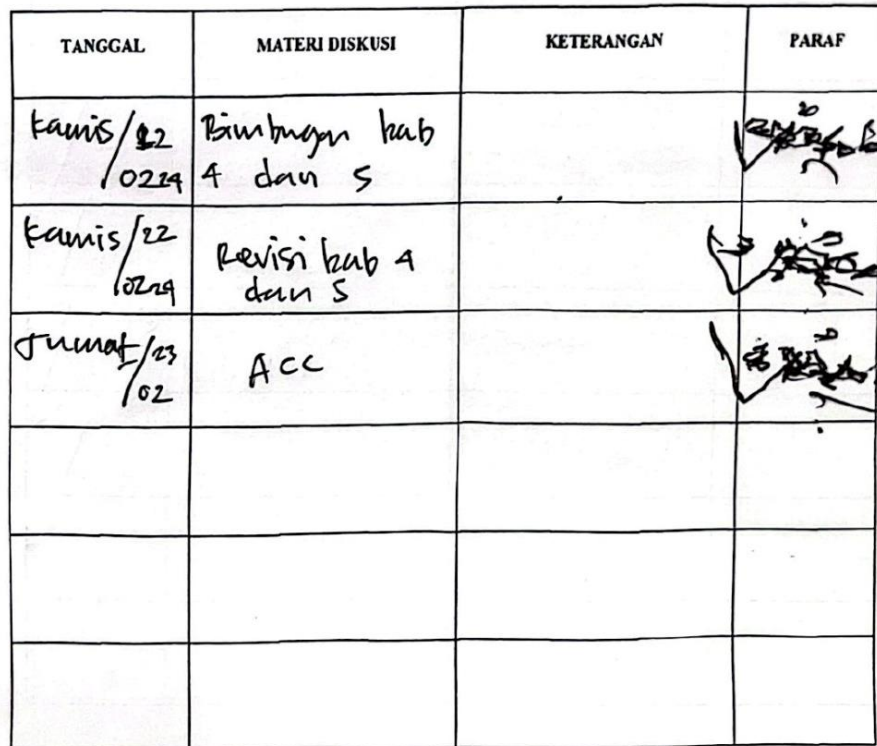 TANGGAL MATERI DISKUSI KETERANGAN PARAF
Kamis/22 Bimbngan bab
/0224 4 dan 5
Kamis/22
/0224
Revisi bab 4
dan 5
Jumat/23
/02
ACC